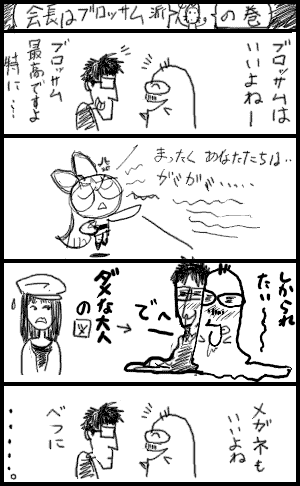 会長はブロッサム派
の巻
ブロッサムは
いいよねー
ブロッサム
最高ですよ
特に・・・
まったく あなたたちは・・
ガミガミ・・・・・
しかられ
たい〜〜
でへ
ダメな大人
の図
メガネも
いいよね
べつに
・・・・・。